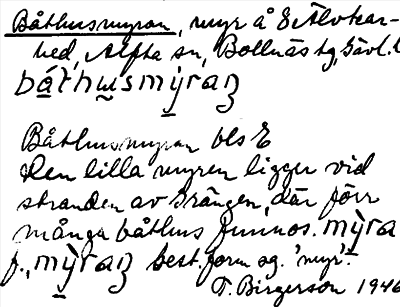 Båthusmyran, myr å E Älvkar-
hed, Alfta sn, Bollnäs tg, Gävl. l
båthusmỳraʒ
Båthusmyran bls E
Den lilla myren ligger vid
stranden av Grängen, där förr
många båthus funnos. mỳra
f., mỳraʒ best. form sg. 'myr'.
T. Birgerson 1946